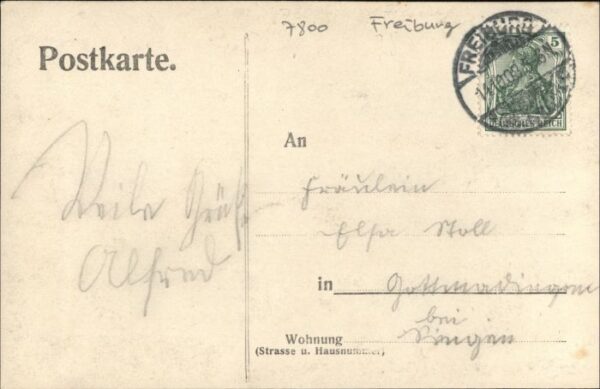 7800 Freiburg
Postkarte.
FREIBURG
5
DEUTSCHES REICH
An
Fräulein
Elsa Stoll
in Gottmadingen
bei
Singen
Wohnung
(Strasse u. Hausnummer)
Grüße
Alfred